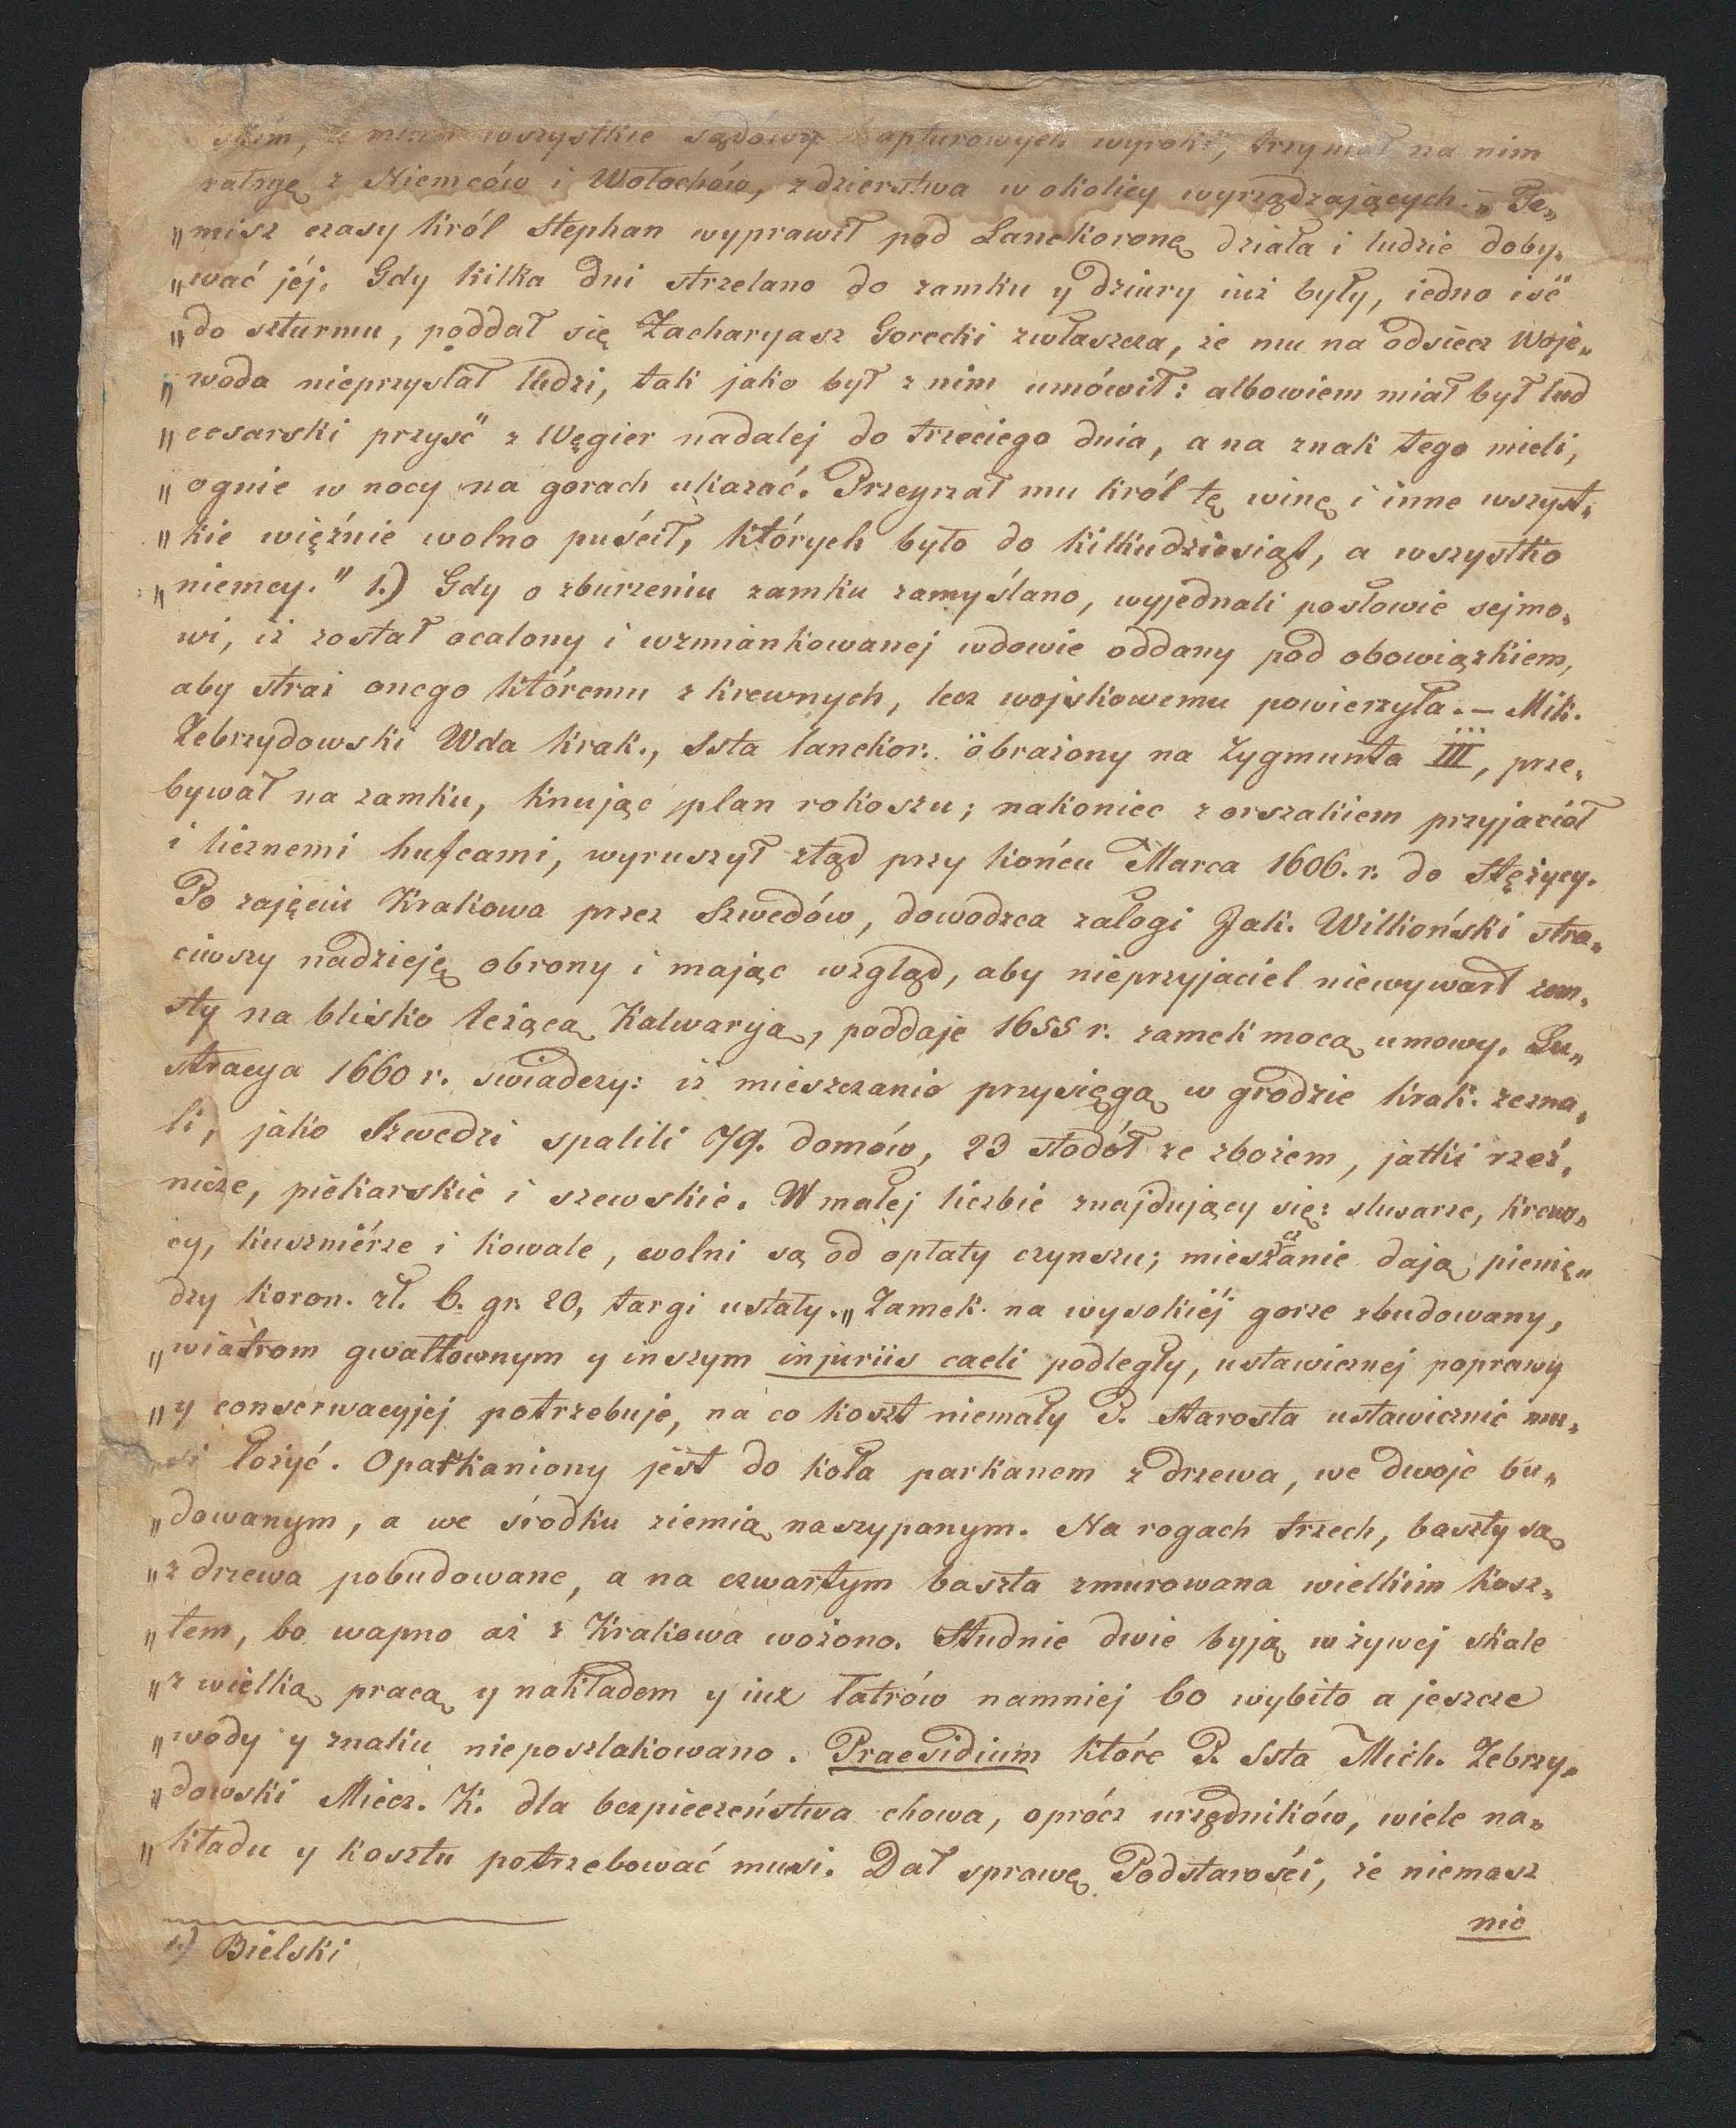 wszystkie sądów kapturowych wyroki, trzymał na nim
załogę z Niemców i Wołochów, zdzierstwa w okolicy wyrządzających. – „Te„
„misz czasy król Stephan wyprawił pod Lanckoronę działa i ludzie doby„
„wać jéj. Gdy kilka dni strzelano do zamku y dziury iuż były, iedno iść
„do szturmu, poddał się Zacharyasz Gorecki zwłaszcza, że mu na odsiecz Woje„
„woda nieprzysłał ludzi, tak jako był z nim umówił: albowiem miał był lud
„cesarski przyść z Węgier nadalej do trzeciego dnia, a na znak tego mieli,
„ognie w nocy na gorach ukazać. Przeyrzał mu król tę winę i inne wszyst„
„kie więźnie wolno puścił, których było do kilkudziesiąt, a wszystko
„niemcy." 1.) Gdy o zburzeniu zamku zamyślano, wyjednali posłowie sejmo„
wi, iż został ocalony i wzmiankowanej wdowie oddany pod obowiązkiem,
aby straż onego któremu z krewnych, lecz wojskowemu powierzyła. – Mik.
Zebrzydowski Wda krak., Ssta lanckor. obrażony na Zygmunta III, prze„
bywał na zamku, knując plan rokoszu; nakoniec z orszakiem przyjaciół
i licznemi hufcami, wyruszył ztąd przy końcu Marca 1606. r. do Stężycy.
Po zajęciu Krakowa przez Szwedów, dowodzca załogi Jak. Wilkoński stra„
ciwszy nadzieję obrony i mając wzgląd, aby nieprzyjaciel niewywarł zem„
sty na blisko leżącą Kalwaryą, poddaje 1655 r. zamek mocą umowy. Lu„
stracya 1660 r. swiadczy: iż mieszczanie przysięgą w grodzie krak. zezna„
li, jako Szwedzi spalili 79. domów, 23 stodół ze zbożem, jatki rzeź„
nicze, piekarskie i szewskie. W małej liczbie znajdujący się: slusarze, kraw„
cy, kuszniérze i kowale, wolni są od opłaty czynszu; mieszczanie dają pienię„
dzy koron. zł. 6. gr. 20, targi ustały. „Zamek na wysokiéj gorze zbudowany,
„wiatrom gwałtownym y inszym injuriis caeli podległy, ustawicznej poprawy
„y conserwacyjej potrzebuje, na co koszt niemały P. Starosta ustawicznie mu„
si łożyć. Oparkaniony jest do koła parkanem z drzewa, we dwoje bu„
„dowanym, a we środku ziemią naszypanym. Na rogach trzech, baszty są
„z drzewa pobudowane, a na czwartym baszta zmurowana wielkim kosz„
„tem, bo wapno aż z Krakowa wożono. Studnie dwie byją w żywej skale
„z wielką pracą y nakładem y iuż łatrów namniej 60 wybito a jeszcze
„wody y znaku nieposzlakowano. Praesidium które P. Ssta Mich. Zebrzy„
„dowski Miecz. K. dla bezpieczeństwa chowa, oprócz urzędników, wiele na„
„kładu y kosztu potrzebować musi. Dał sprawę Podstarości, że niemasz
nic
1.) Bielski